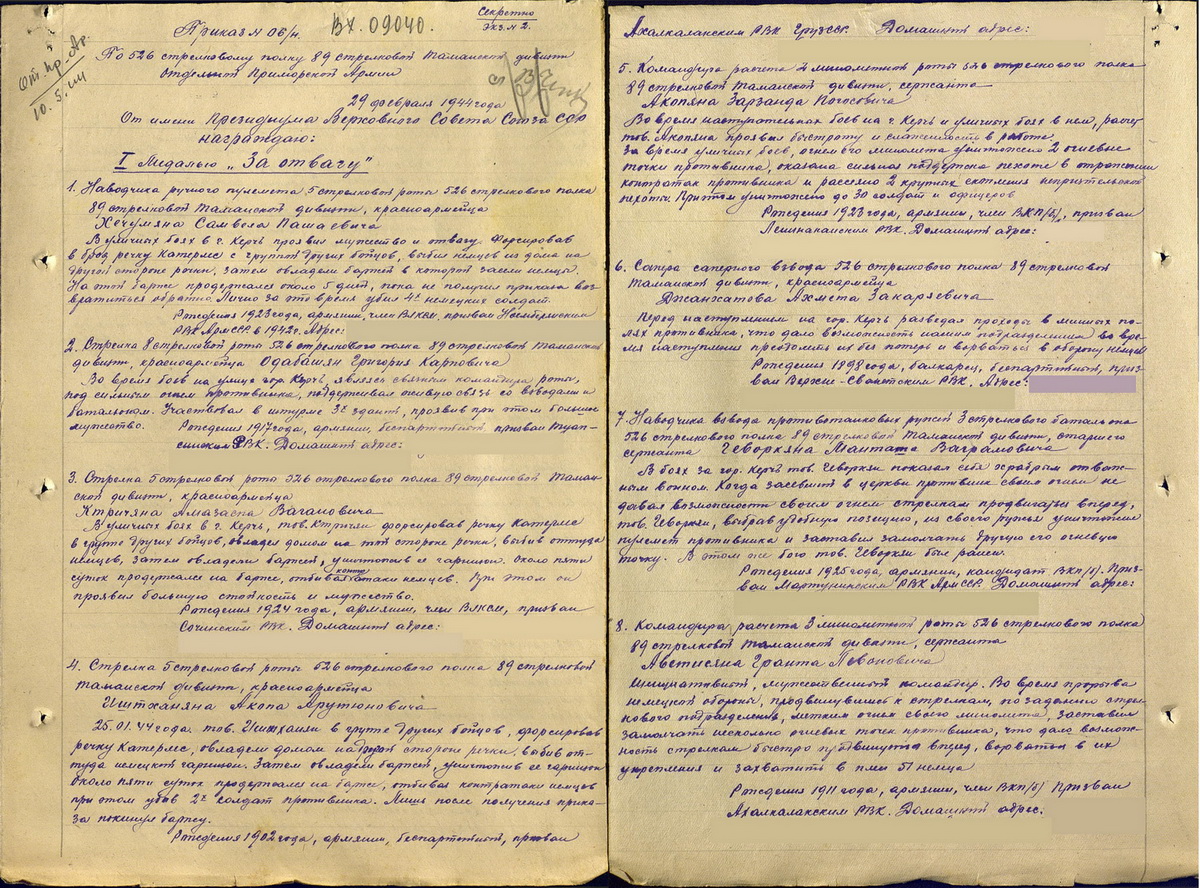 Приказ № 06/н.
Вх. 09040.
Секретно
Экз. № 2.
По 526 стрелковому полку 89 стрелковой Таманской дивизии
Отдельной Приморской Армии
10.5.44
29 февраля 1944 года
От имени Президиума Верховного Совета Союза ССР
награждаю:
I Медалью „За отвагу"
1. Наводчика ручного пулемета 5 стрелковой роты 526 стрелкового полка
89 стрелковой Таманской дивизии, красноармейца
Хечумяна Самвела Пашаевича
В уличных боях в г. Керчь проявил мужество и отвагу. Форсировав
в брод речку Катерлес с группой других бойцов, выбил немцев из дома на
другой стороне речки, затем овладели баржей в которой засели немцы.
На этой барже продержался около 5 дней, пока не получил приказа воз-
вратиться обратно. Лично за это время убил 4х немецких солдат.
Рождения 1923 года, армянин, член ВЛКСМ, призван
РВК АрмССР в 1942 г. Адрес:
2. Стрелка 8 стрелковой роты 526 стрелкового полка 89 стрелковой Таманской
дивизии, красноармейца Одабашян Григория Карповича
Во время боев на улице гор. Керчь, являясь связным командира роты,
под сильным огнем противника, поддерживал живую связь со взводами и
батальоном. Участвовал в штурме 3х зданий, проявив при этом большое
мужество. Рождения 1917 года, армянин, беспартийный призван Туап-
синским РВК. Домашний адрес:
3. Стрелка 5 стрелковой роты 526 стрелкового полка 89 стрелковой Таман-
ской дивизии, красноармейца
Ктричяна Амазаспа Вагановича
В уличных боях в г. Керчь, тов. Ктричян форсировав речку Катерлес
в группе других бойцов, овладел домом на той стороне речки, выбив оттуда
немцев, затем овладели баржей, уничтожив ее гарнизон. Около пяти
суток продержался на барже, отбивая контратаки немцев. При этом он
проявил большую стойкость и мужество.
Рождения 1924 года, армянин, член ВЛКСМ, призван
Сочинским РВК. Домашний адрес:
4. Стрелка 5 стрелковой роты 526 стрелкового полка 89 стрелковой
Таманской дивизии, красноармейца
Ишханяна Акопа Арутюновича
25.01.44 года тов. Ишханян в группе других бойцов, форсировав
речку Катерлес, овладели домом на другой стороне речки выбив от-
туда немецкий гарнизон. Затем овладели баржей, уничтожив ее гарнизон
около пяти суток продержался на барже, отбивая контратаки немцев
при этом убив 2х солдат противника. Лишь после получения прика-
за покинул баржу.
Рождения 1902 года, армянин, беспартийный, призван
Ахалкалакским РВК ГрузССР. Домашний адрес:
5. Командира расчета 2 минометной роты 526 стрелкового полка
89 стрелковой Таманской дивизии, сержанта
Акопяна Зарзанда Погосовича
Во время наступательных боев на г. Керчь и уличных боев в нем, расчет
тов. Акопяна проявил быстроту и слаженность в работе.
За время уличных боев, огнем его миномета уничтожено 2 огневые
точки противника, оказана сильная поддержка пехоте в отражении
контратак противника и рассеяно 2 крупных скопления неприятельской
пехоты. При этом уничтожено до 30 солдат и офицеров
Рождения 1923 года, армянин, член ВКП/б/, призван
Ленинаканским РВК. Домашний адрес:
6. Сапера саперного взвода 526 стрелкового полка 89 стрелковой
Таманской дивизии, красноармейца
Джанхатова Ахмета Закаряевича
Перед наступлением на гор. Керчь разведал проходы в минных по-
лях противника, что дало возможность нашим подразделениям во вре-
мя наступления преодолеть их без потерь и ворваться в оборону немцев
Рождения 1898 года, балкарец, беспартийный, приз-
ван Верхне-Сванетским РВК. Адрес:
7. Наводчика взвода противотанковых ружей 3 стрелкового батальона
526 стрелкового полка 89 стрелковой Таманской дивизии, старшего
сержанта Геворкяна Ваграмовича
В боях за гор. Керчь тов. Геворкян показал себя храбрым отваж-
ным воином. Когда засевший в церкви противник своим огнем не
давал возможности своим огнем стрелкам продвигаться вперед,
тов. Геворкян, выбрав удобную позицию, из своего ружья уничтожил
пулемет противника и заставил замолчать другую его огневую
точку. В этом же бою тов. Геворкян был ранен.
Рождения 1925 года, армянин, кандидат ВКП/б/. Приз-
ван Мартунинским РВК АрмССР. Домашний адрес:
8. Командира расчета 3 минометной роты 526 стрелкового полка
89 стрелковой Таманской дивизии, сержанта
Аветисяна Гранта Левоновича
Инициативный, мужественный командир. Во время прорыва
немецкой обороны, продвинувшись к стрелкам, по заданию стрел-
кового подразделения, метким огнем своего миномета, заставил
замолчать несколько огневых точек противника, что дало возмож-
ность стрелкам быстро продвинуться вперед, ворваться в их
укрепления и захватить в плен 51 немца
Рождения 1911 года, армянин, член ВКП/б/ Призван
Ахалкалакским РВК. Домашний адрес.